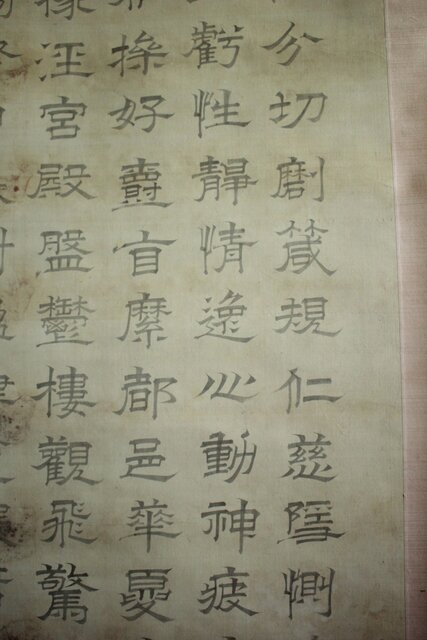 分切磨箴規仁慈隱惻
虧性靜情逸心動神疲
操好爵自縻都邑華夏
據涇宮殿盤鬱樓觀飛驚